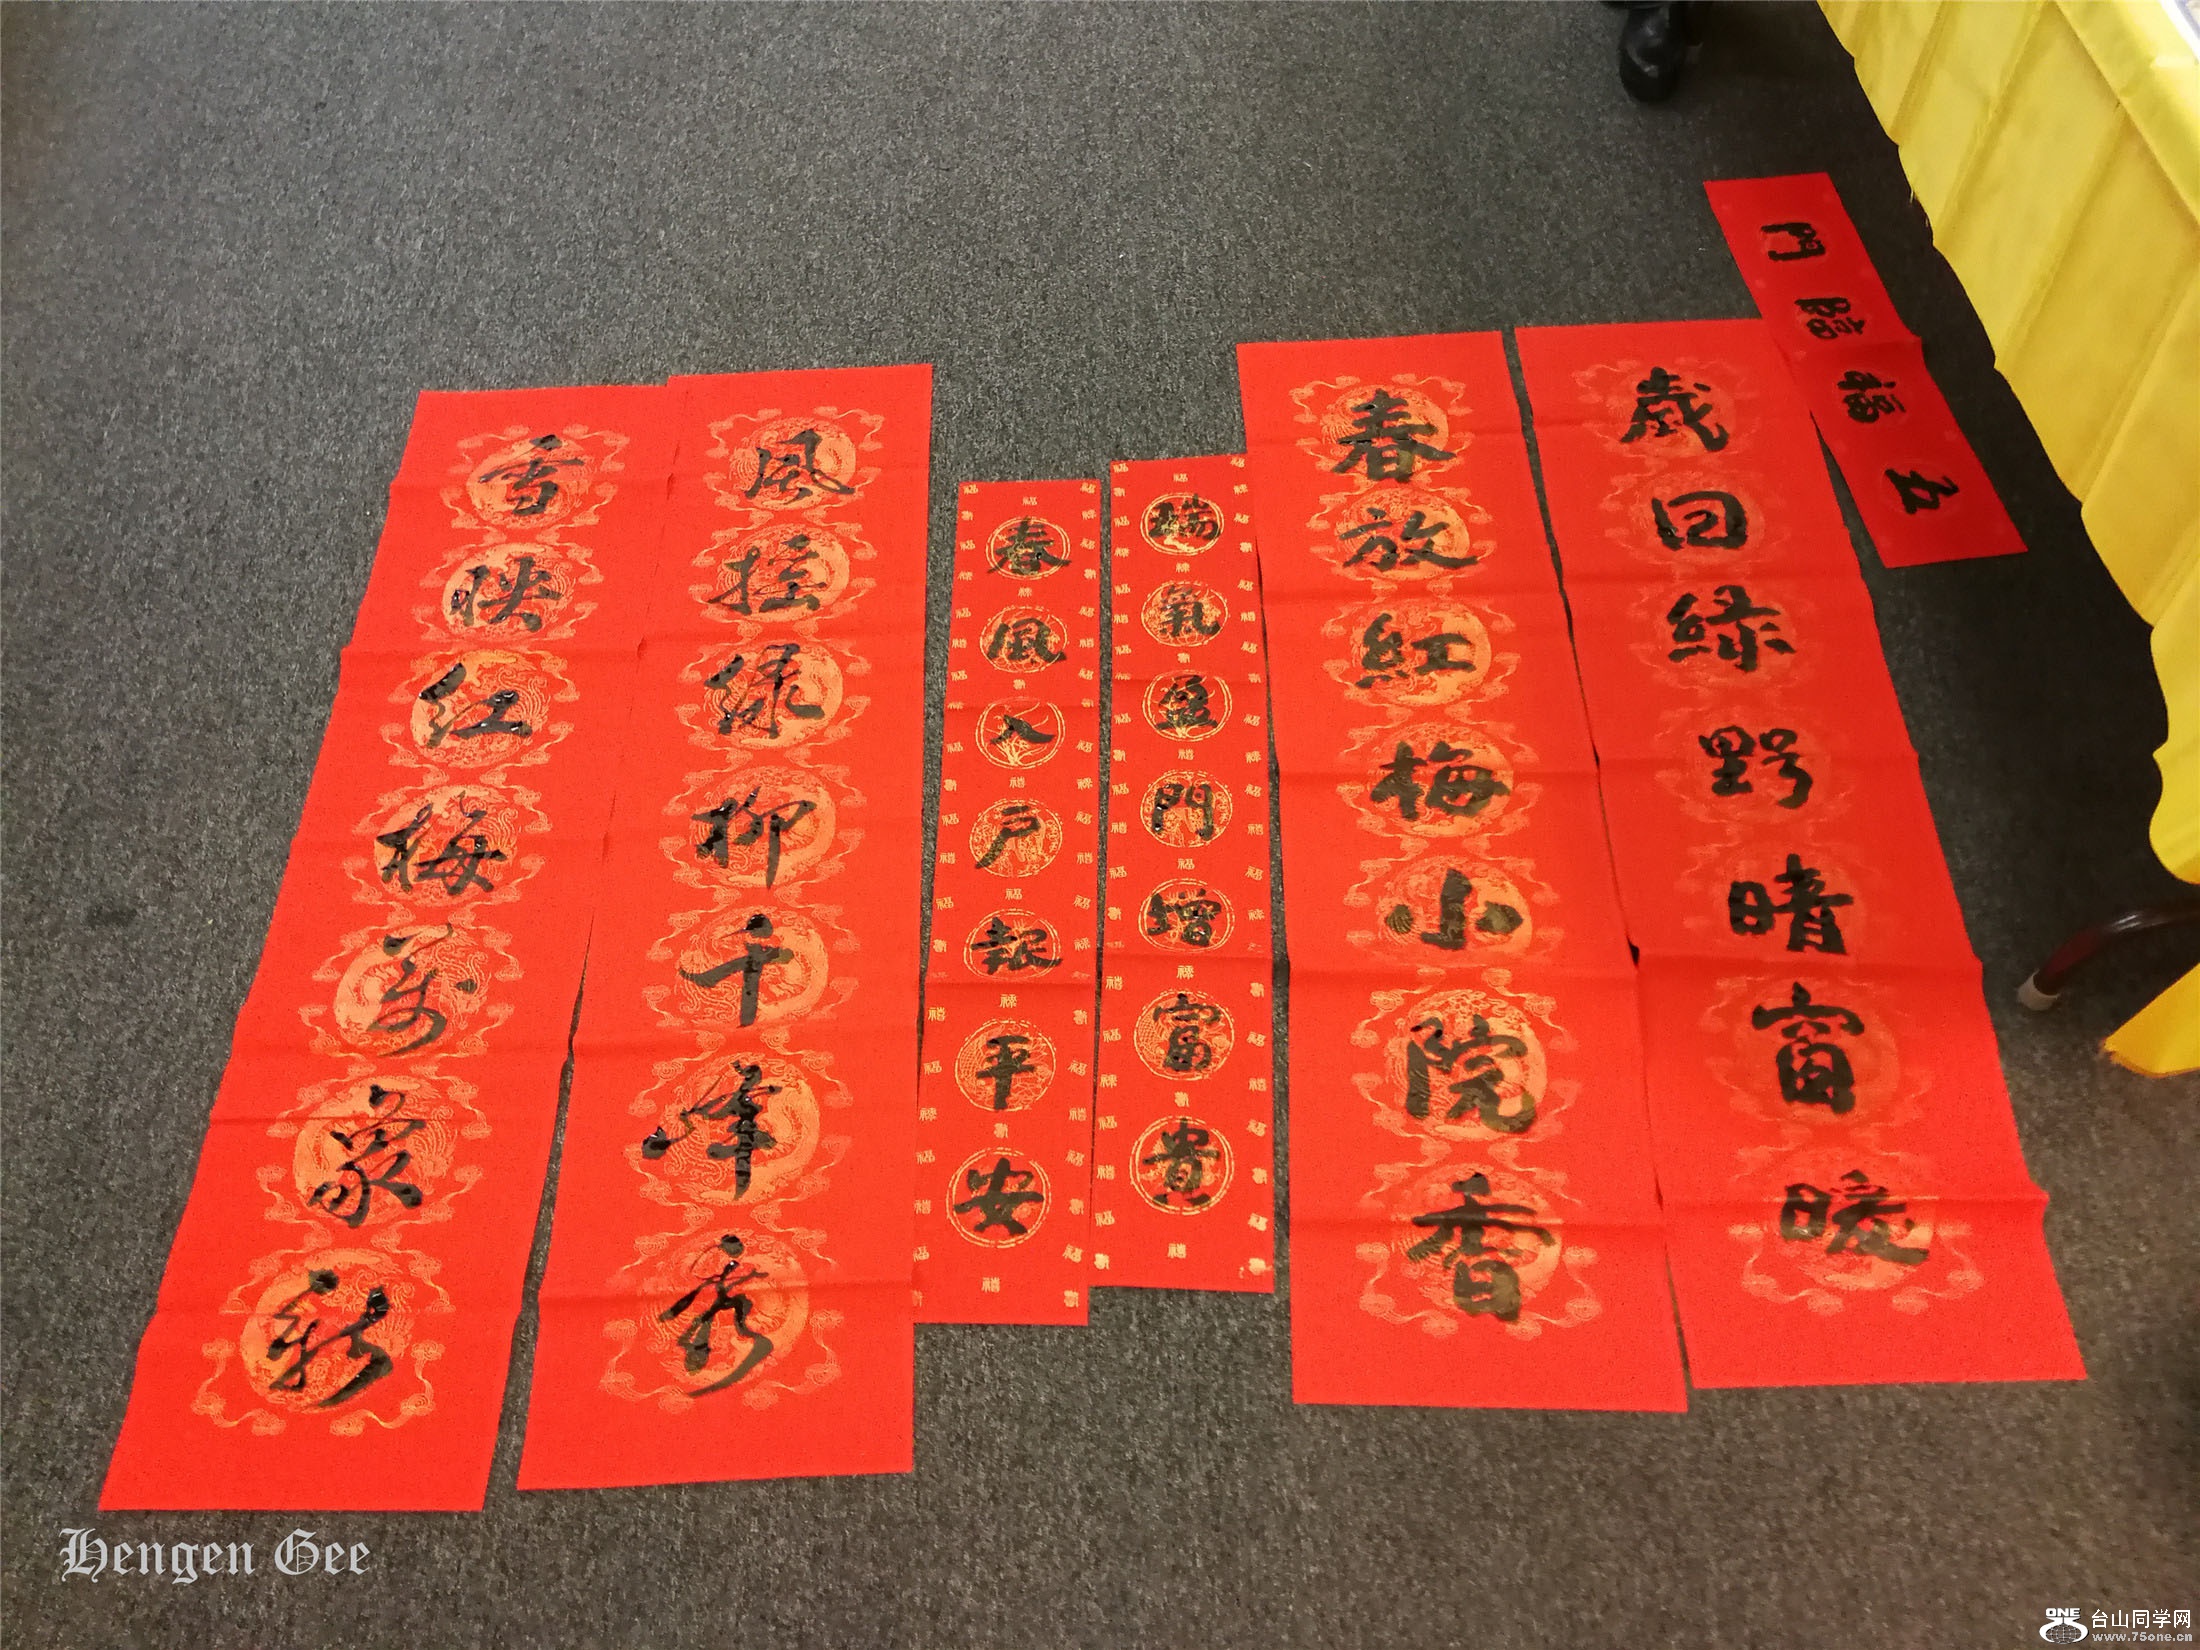 五福臨門
歲回緑野晴窗暖
春放紅梅小院香
瑞氣盈門增富貴
春風入户報平安
風搖绿柳千峰秀
雪映红梅萬象新
Hengen Gee
ONE 台山同学网
www.75one.cn